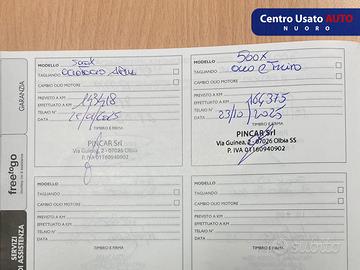 Centro Usato AUTO
NUORO
GARANZIA
freetogo
SERVIZI
DI ASSISTENZA
MODELLO 500X
TAGLIANDO
CAMBIO OLIO MOTORE
PREVISTO A KM
EFFETTUATO A KM 143418
TELAIO N°
DATA
TIMBRO E FIRMA
PINCAR Srl
Via Guinea, 2 - 07026 Olbia SS
P. IVA 01160940902
MODELLO 500X
TAGLIANDO OLIO E FILTRO
CAMBIO OLIO MOTORE
PREVISTO A KM
EFFETTUATO A KM 164375
TELAIO N°
DATA 23/10/2025
TIMBRO E FIRMA
PINCAR Srl
Via Guinea, 2 - 07026 Olbia SS
P. IVA 01160940902
MODELLO
TAGLIANDO
CAMBIO OLIO MOTORE
PREVISTO A KM
EFFETTUATO A KM
TELAIO N°
DATA
TIMBRO E FIRMA
MODELLO
TAGLIANDO
CAMBIO OLIO MOTORE
PREVISTO A KM
EFFETTUATO A KM
TELAIO N°
DATA
TIMBRO E FIRMA